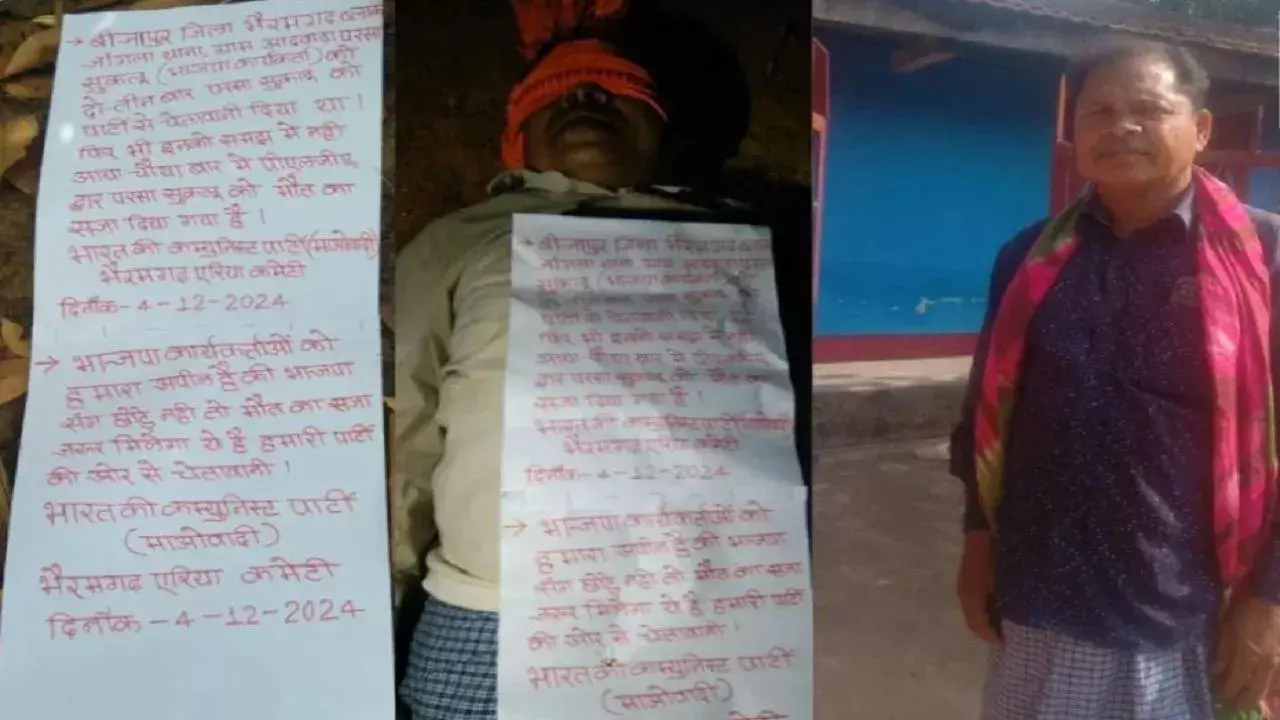 → बीजापुर जिला भैरमगढ़ ब्लाक
जांगला थाना, ग्राम आदवाड़ा परसा
सुकलू (भाजपा कार्यकर्ता) को
दो-तीन बार परसा सुकलू को
पार्टी से चेतावनी दिया था।
फिर भी इनको समझ मे नही
आया चौथा बार मे पीएलजीए
द्वार परसा सुकलू को मौत का
सजा दिया गया है।
भारत की कम्युनिस्ट पार्टी (माओवादी)
भैरमगढ़ एरिया कमेटी
दिनाँक-4-12-2024
→ भाजपा कार्यकर्ताओं को
हमारा अपील है की भाजपा
संग छोड़े नही तो मौत का सजा
जरूर मिलेगा ये है हमारी पार्टी
की ओर से चेतावनी।
भारत की कम्युनिस्ट पार्टी
(माओवादी)
भैरमगढ़ एरिया कमेटी
दिनाँक-4-12-2024
→ बीजापुर जिला भैरमगढ़
सुकलू (भाजपा
फिर भी इनको समझ मे नही
द्वार परसा सुकलू को मौत
सजा दिया गया है।
भारत की कम्युनिस्ट पार्टी (माओवादी)
भैरमगढ़ एरिया कमेटी
दिनाँक-4-12-2024
→ भाजपा कार्यकर्ताओं को
हमारा अपील है की भाजपा
संग छोड़े नही तो मौत का सजा
जरूर मिलेगा ये है हमारी पार्टी
की ओर से चेतावनी!
भारत की कम्युनिस्ट पार्टी
(माओवादी)